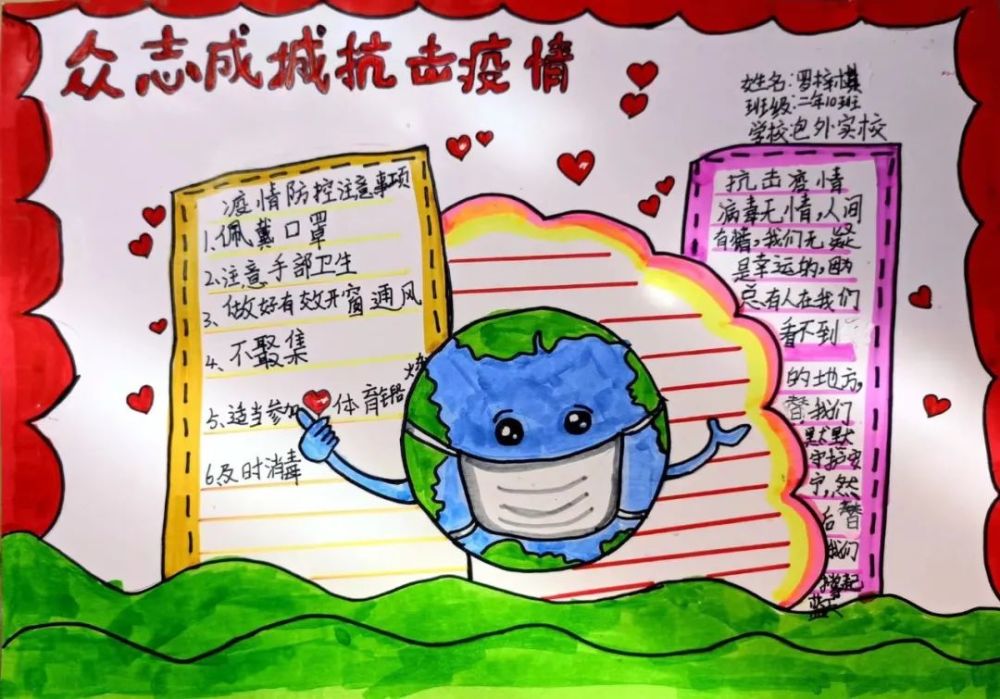 众志成城抗击疫情
姓名:罗梓棋
班级:二年10班
学校泡外实校
疫情防控注意事项
1、佩戴口罩
2、注意手部卫生
3、做好有效开窗通风
4、不聚集
5、适当参加体育锻炼
6、及时消毒
抗击疫情
病毒无情,人间
有情,我们无疑
是幸运的,因为
总有人在我们
看不到
的地方,
替我们
默默
守护安
宁,然
后替
我们
撑起
蓝天